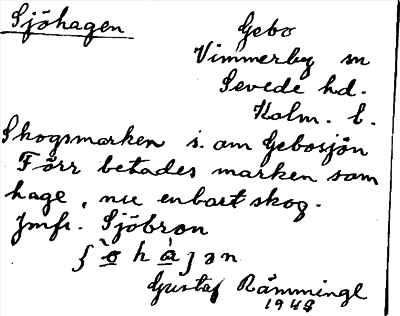 Sjöhagen
Gebo
Vimmerby sn
Sevede hd.
Kalm. l.
Skogsmarken s. om Gebosjön
Förr betades marken som
hage, nu enbart skog.
Jmfr. Sjöbron
Gustaf Rämmingl
1948